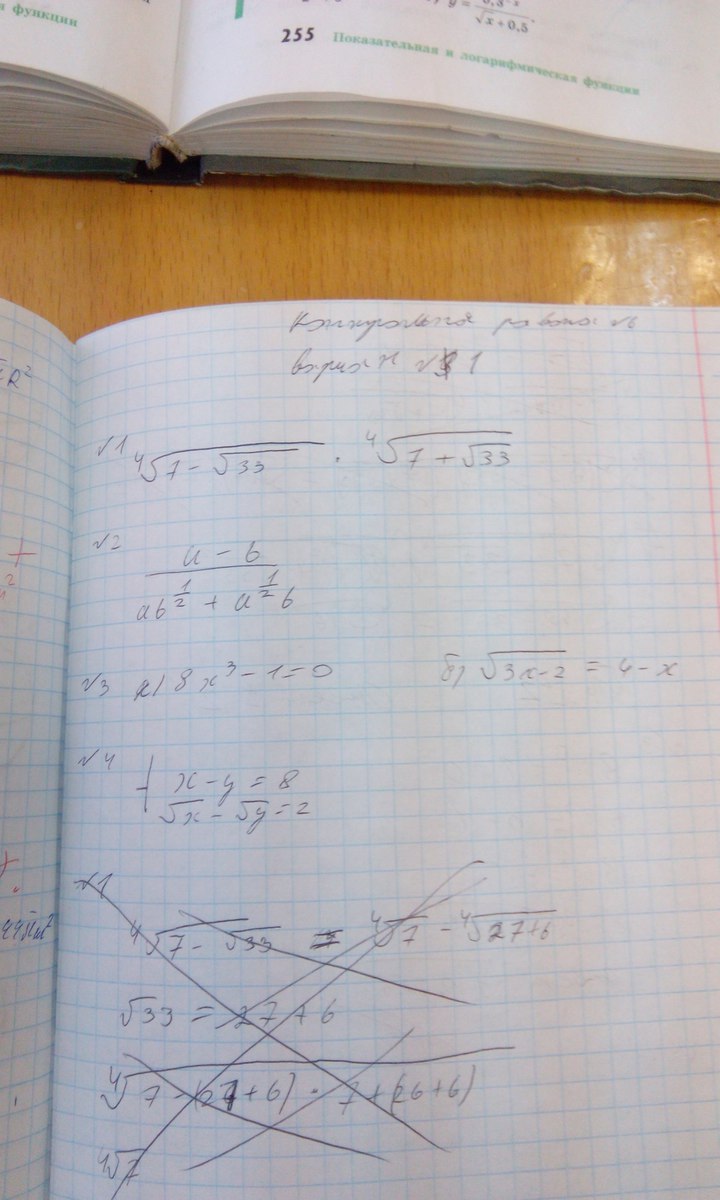 я функции
y = 0,8⁻ˣ / √x + 0,5.
255 Показательная и логарифмическая функции
R²
Контрольная работа №6
вариант №1
№1 ⁴√(7 - √33) · ⁴√(7 + √33)
№2 (a - b) / (ab^(1/2) + a^(1/2)b)
№3 а) 8x³ - 1 = 0 б) √(3x - 2) = 4 - x
№4 { x - y = 8
√x - √y = 2
№1
⁴√(7 - √33) = ⁴√7 - ⁴√(27+6)
√33 = 27 + 6
⁴√(7 - (27 + 6) · 7 + (26 + 6))
⁴√7